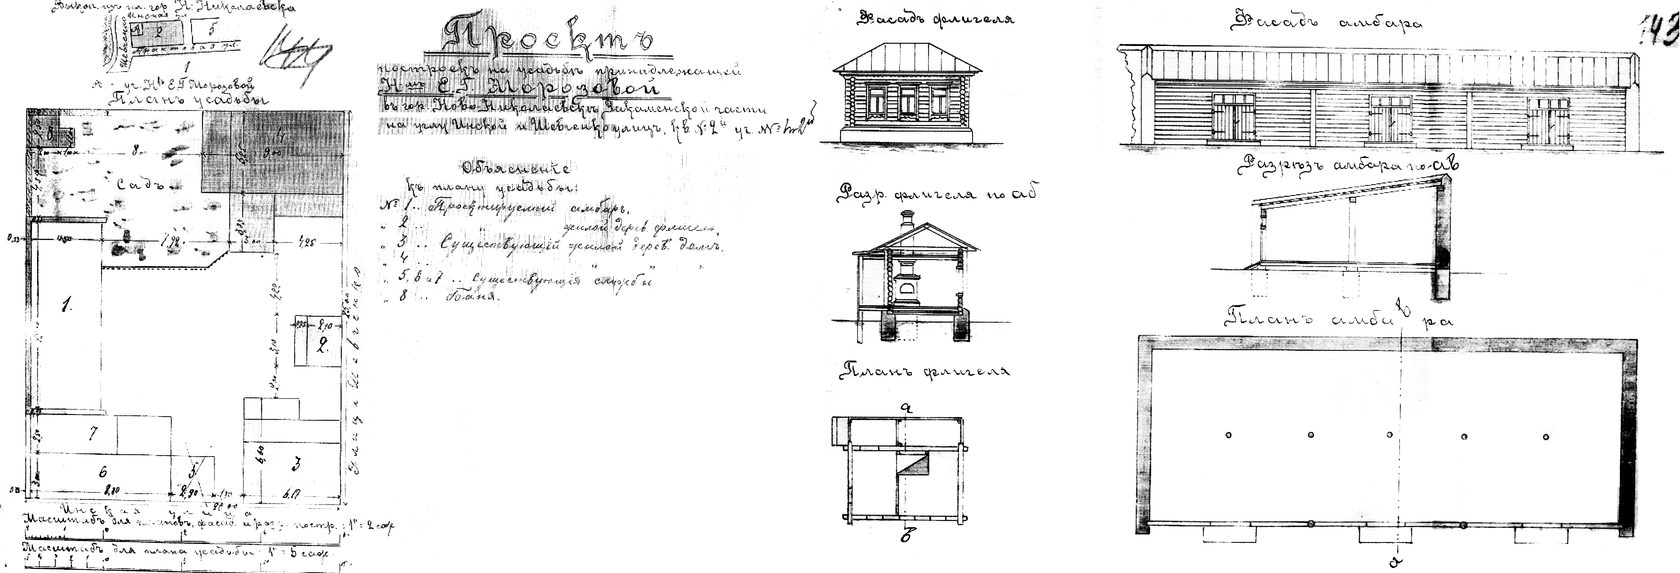 Выкоп. изъ пл. гор. Н. Николаевска
Инская ул.
2
5
Шевченко
Трактовая ул.
1
А - уч. Н-въ Е. Г. Морозовой
Планъ усадьбы
8
4
Садъ
7,92
4,25
1.
2,10
2.
7
6
5
3
2,90
Улица Шевченко
Инская улица
Масштабъ для плановъ, фасад. и разр. постр. 1" = 2 саж
Масштабъ для плана усадьбы 1" = 5 саж
Проектъ
построекъ на усадьбѣ принадлежащей
Е. Г. Морозовой
въ гор. Ново-Николаевскѣ, Закаменской части
на углу Инской и Шевченко улицъ, кв. №2й уч. №
Объясненіе
къ плану усадьбы:
№ 1 .. Проектируемый амбаръ,
" 2 .. " жилой дерев. флигель,
" 3 .. Существующій жилой дерев. домъ.
" 4 .. "
" 5, 6 и 7 .. Существующія службы
" 8 .. Баня.
Фасадъ флигеля
Разр. флигеля по аб
Планъ флигеля
а
в
Фасадъ амбара
143
Разрѣзъ амбара по ав
Планъ амбара
в
а